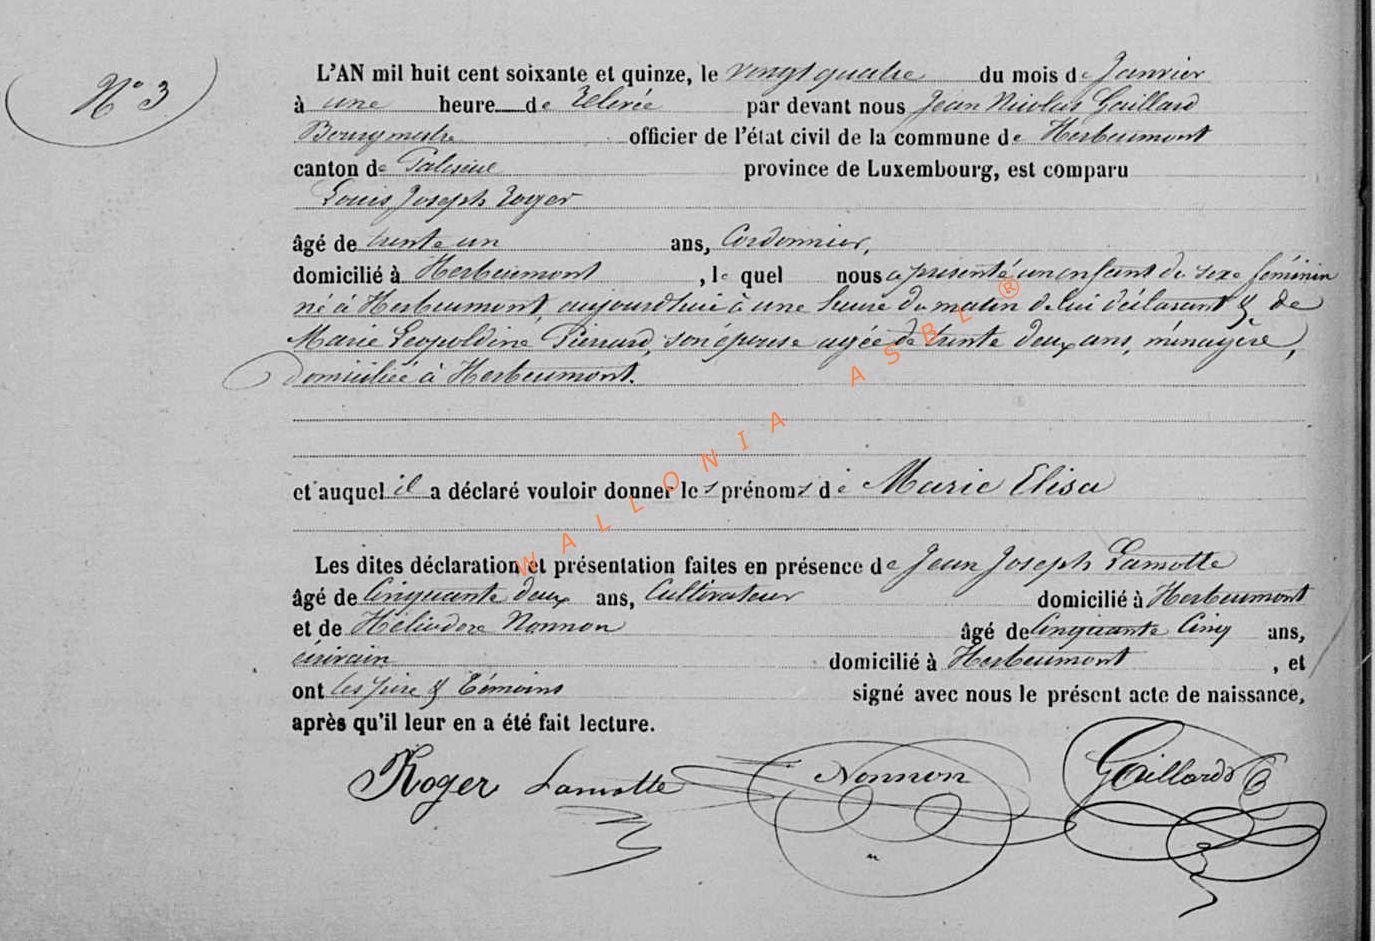 N° 3
L'AN mil huit cent soixante et quinze, le vingt quatre du mois de Janvier
à une heure de Relevée par devant nous Jean Nicolas Gaillard
Bourgmestre officier de l'état civil de la commune de Herbeumont
canton de Paliseul province de Luxembourg, est comparu
Louis Joseph Roger
âgé de trente un ans, Cordonnier,
domicilié à Herbeumont, le quel nous a présenté un enfant du sexe féminin
né à Herbeumont, aujourd'hui à une heure du matin de lui déclarant & de
Marie Léopoldine Pierrard, son épouse agée de trente deux ans, ménagère,
Domiciliée à Herbeumont.
et auquel il a déclaré vouloir donner les prénoms de Marie Elisa
Les dites déclaration et présentation faites en présence de Jean Joseph Lamotte
âgé de Cinquante deux ans, Cultivateur domicilié à Herbeumont
et de Héliodore Nonnon âgé de Cinquante Cinq ans,
écrivain domicilié à Herbeumont, et
ont les père & Témoins signé avec nous le présent acte de naissance,
après qu'il leur en a été fait lecture.
Roger Lamotte Nonnon Gaillard
WALLONIA ASBL ®